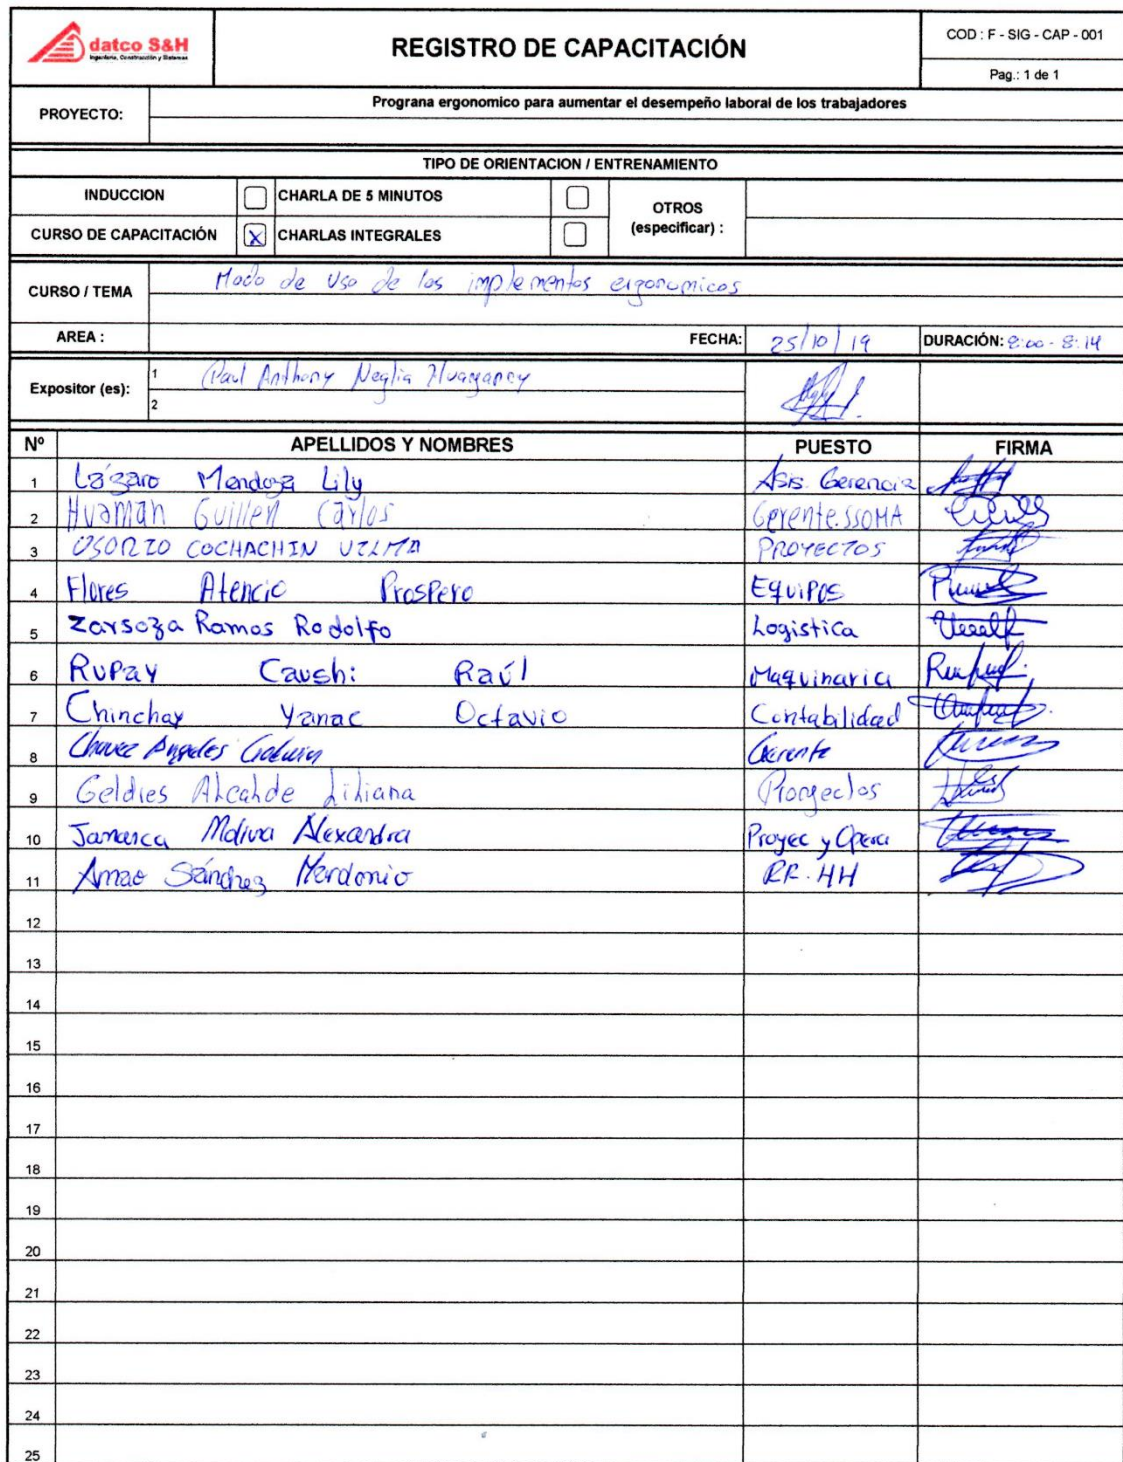 datco S&H
Ingeniería, Construcción y Sistemas
REGISTRO DE CAPACITACIÓN
COD : F - SIG - CAP - 001
Pag.: 1 de 1
PROYECTO:
Prograna ergonomico para aumentar el desempeño laboral de los trabajadores
TIPO DE ORIENTACION / ENTRENAMIENTO
INDUCCION
CHARLA DE 5 MINUTOS
OTROS
(especificar) :
CURSO DE CAPACITACIÓN X CHARLAS INTEGRALES
CURSO / TEMA Modo de Uso de los implementos ergonomicos
AREA : FECHA: 25/10/19 DURACIÓN: 8:00 - 8:14
Expositor (es):
1 Paul Anthony Neglia
2
Nº APELLIDOS Y NOMBRES PUESTO FIRMA
1 Lázaro Mendoza Lily Asis. Gerencia
2 Huaman Guillen Carlos Gerente.SSOMA
3 OSORIO COCHACHIN VILMA PROYECTOS
4 Flores Atencio Prospero Equipos
5 Zarsoza Ramos Rodolfo Logistica
6 Rupay Caushi Raúl Maquinaria
7 Chinchay Yanac Octavio Contabilidad
8 Chavez Angeles Gerente
9 Geldies Alcalde Liliana Proyectos
10 Molina Alexandra Proyec y Opera
11 Amao Sánchez Merdonio RR.HH
12
13
14
15
16
17
18
19
20
21
22
23
24
25